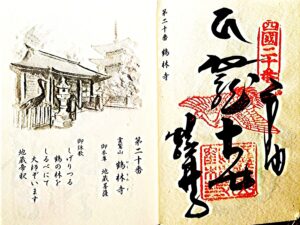 第二十番 鶴林寺
四國二十番
奉納
地蔵大士
鶴林寺
第二十番
霊鷲山 鶴林寺
御本尊 地蔵菩薩
御詠歌
しげりつる
鶴の林を
しるべにて
大師ぞいます
地蔵帝釈